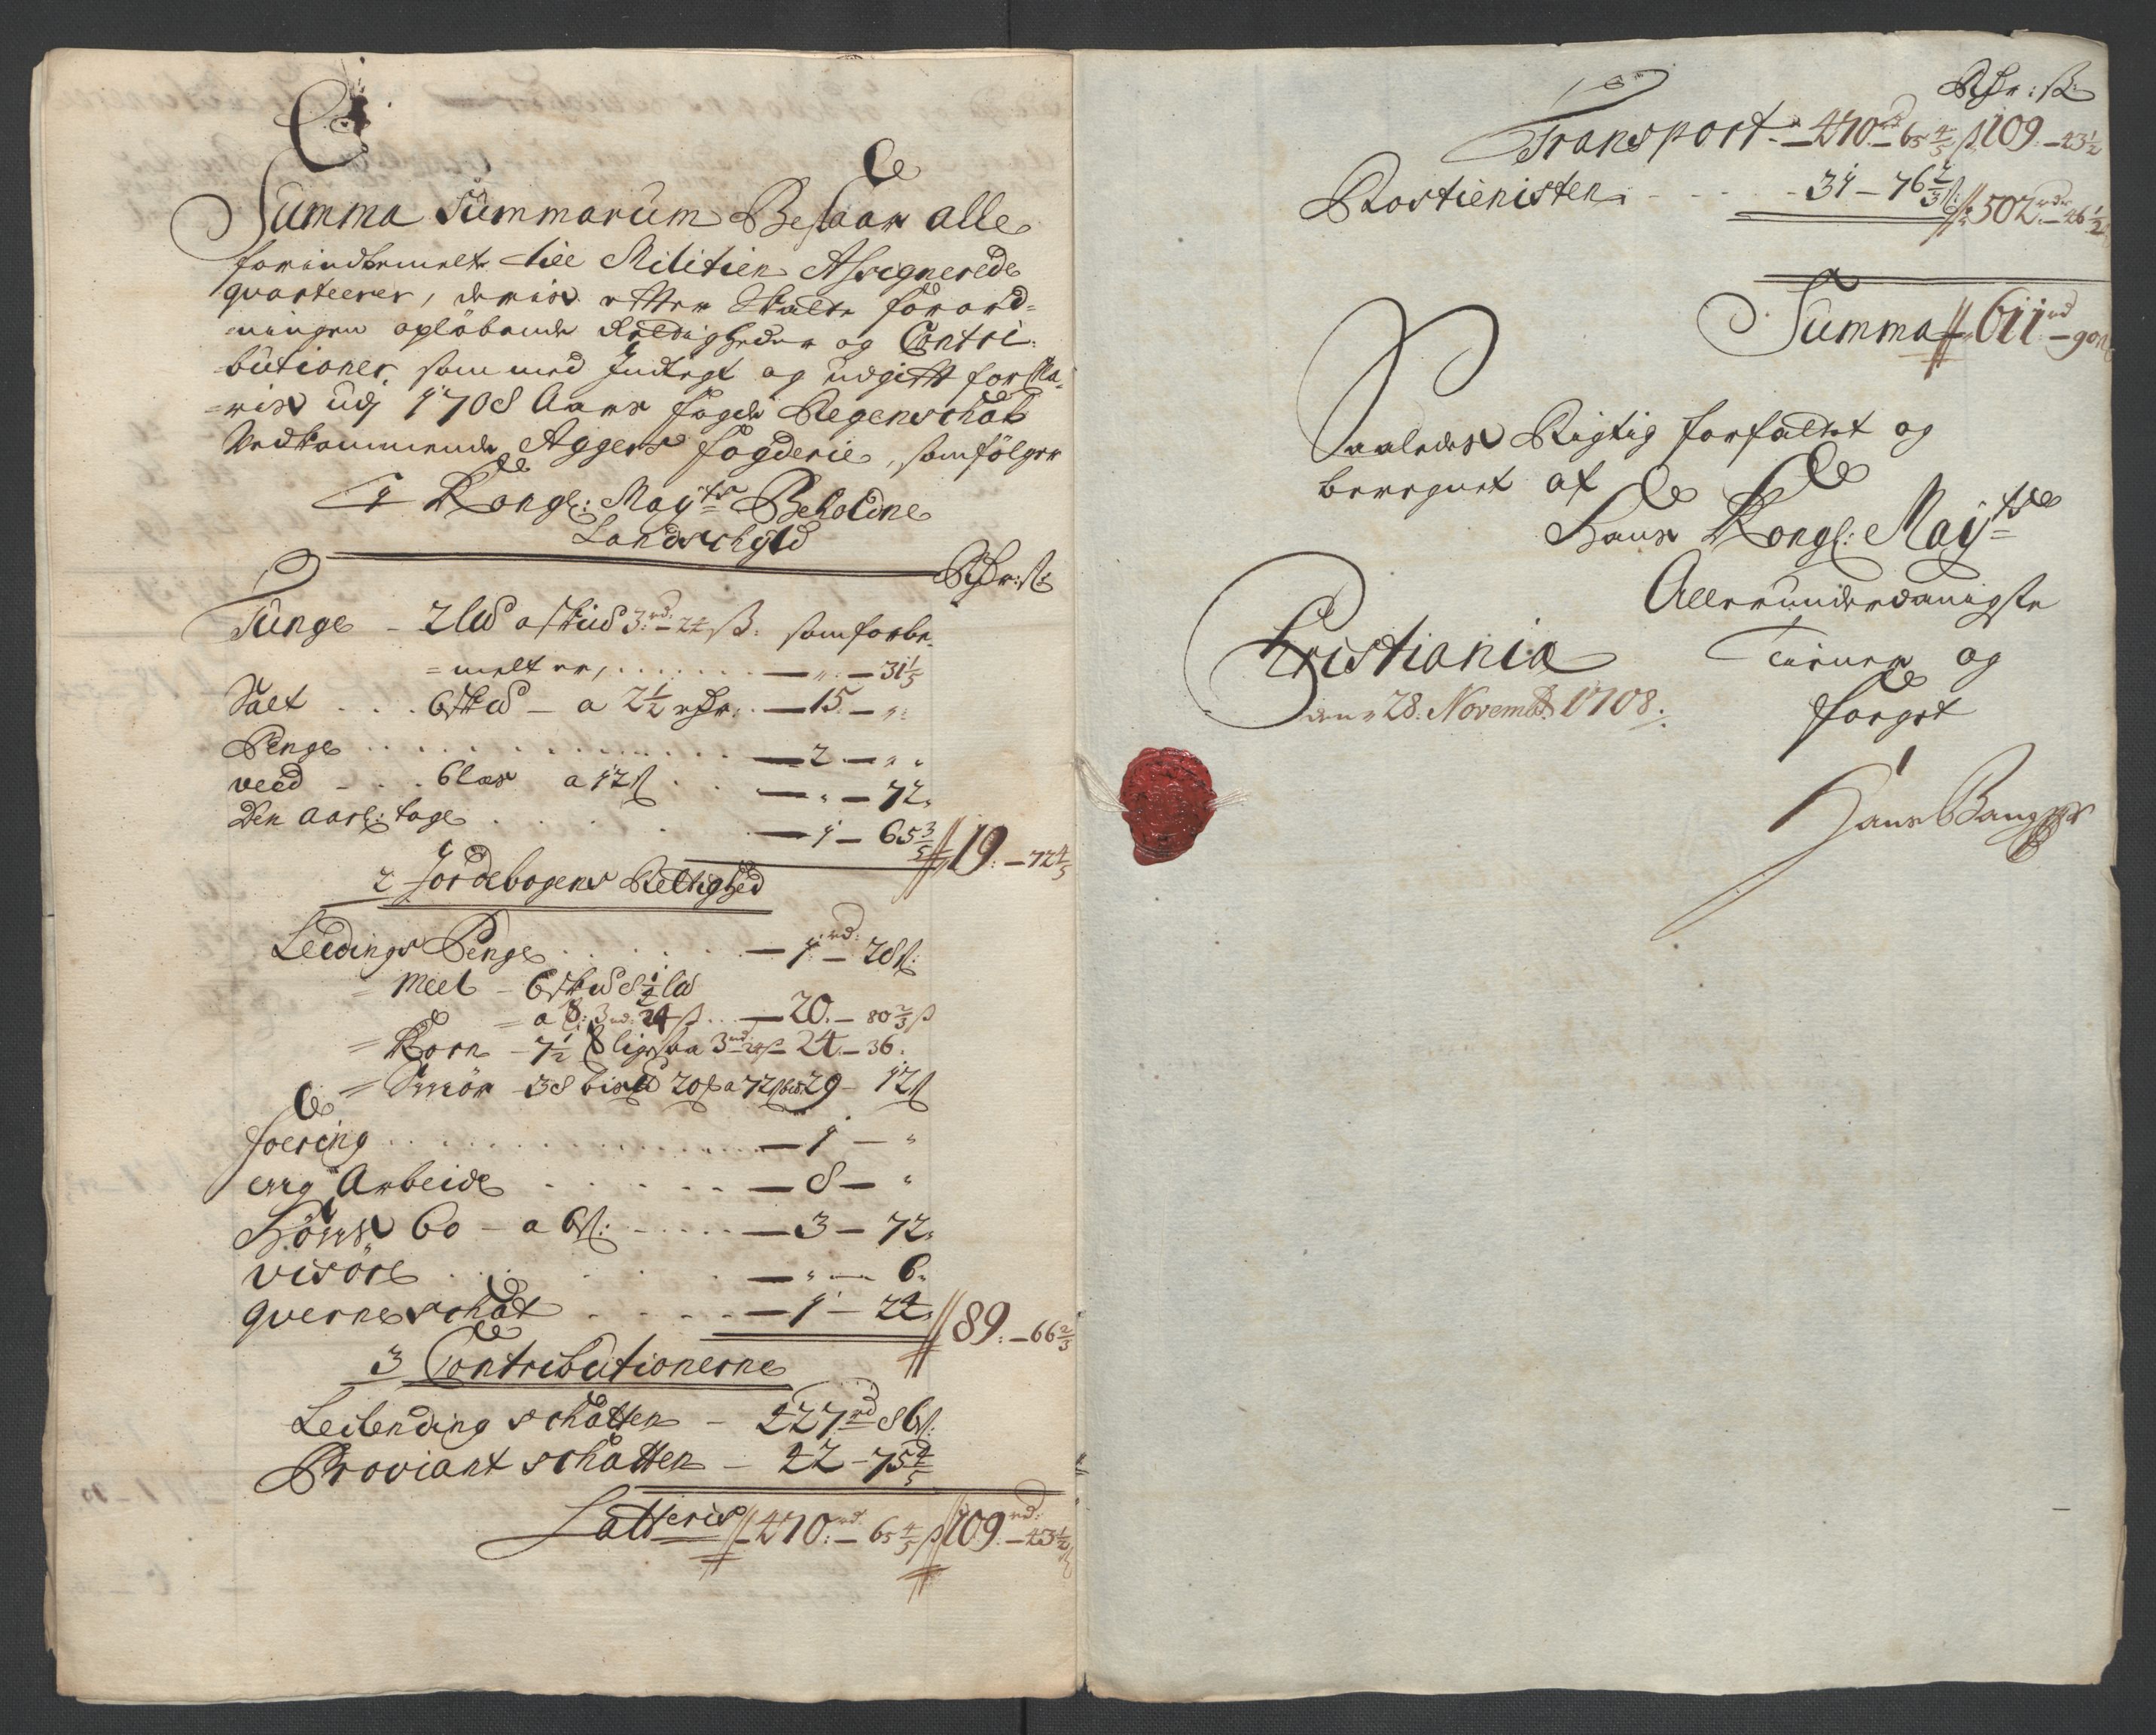 Summa Summarum Beløaar alle
forindbemelte till Militien Assignerede
quarteerer, deris effter Skatte forord-
ningen opløbende Rettigheder og Contri-
butioner, som med Indtegt og udgifft forkla-
ris udj 1708 Aars fogde Regenschab
Vedkommende Aggers fogderie, som følger
1 Kongl: Mayts Beholdne
Landschyld
Rdr: ß
Tunge - 2 lld a skud 3rd: 24 ß: som forbe-
= melt er, . . . . . . — „ — 31 1/5
Salt . . . 6 skud - a 2 1/2 rdr: — 15 — „
Penge . . . . . . — 2 — „
veed - . . 6 læs a 12 ß . . — „ — 72
Den aarl: tage . . . . . — 1 — 65 3/5 // 19: — 72 4/5
2 Jordebogens Rettighed
Leedings Penge . . . . . — 1rd: — 28 ß
= Meel - 6 skud 8 1/2 lld
= a : 3rd: 24 ß . . — 20. — 80 2/3 ß
= Korn - 7 1/2 ligesaa 3rd 24 ß — 24 — 36.
= Smør - 38 bismd 20 a 72 ß 29 — 12 ß
foering . . . . . . . . — 1 — „
errg Arbeide . . . . . — 8 — „
Høns 60 - a 6 ß: . . . . — 3 — 72
visøre . . . . . — „ — 6
querneschat . . . . — 1 — 24 // 89: — 66 2/3
3 Contributionerne
Leilending schatten — 427rd 86 ß:
Proviant schatten — 42 — 75 4/5
Latteris // 470:rd — 65 4/5 ß // 109:rd — 43 1/2
Rdr: ß:
Transport — 470rd — 65 4/5 ß 109 — 43 1/2
Rostienisten . . . . 31 — 76 2/3 ß // 502rdr — 46 1/2
Summa // 611rd — 90
Saaledes Rigtig forfattet og
beregnet af
Hans Kongl: Mayts
Allerunderdanigste
Christiania Tiener og
den 28. Novembr 1708. foeget
Hans Bang